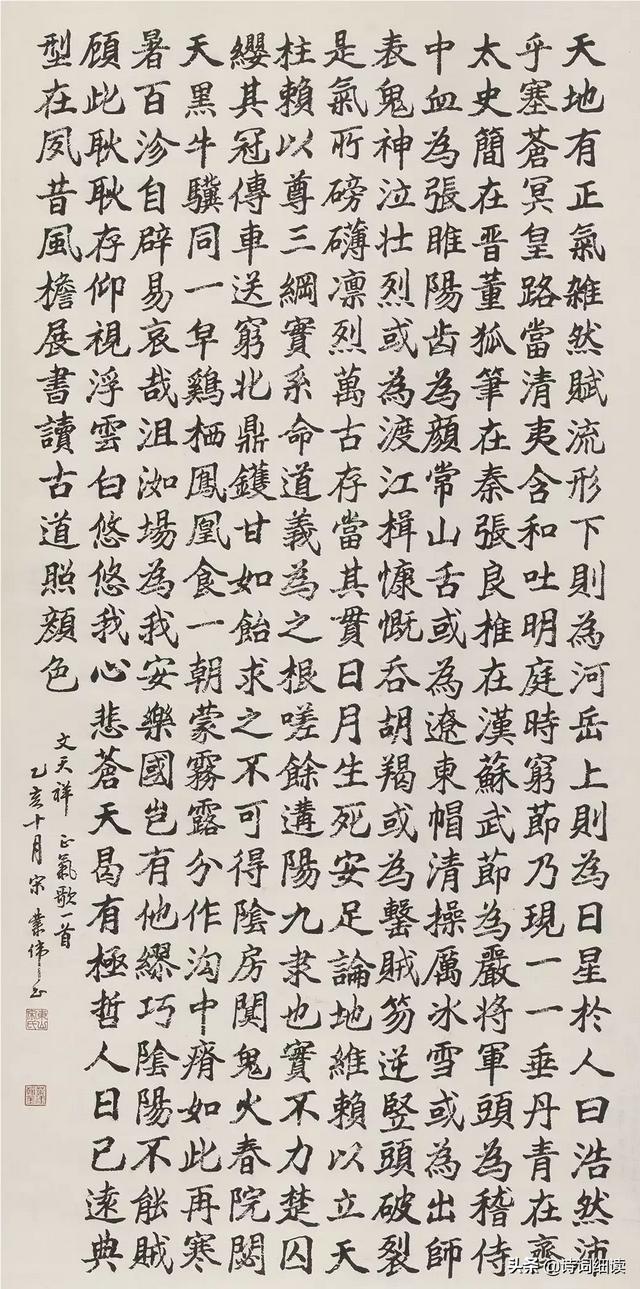 天地有正氣雜然賦流形下則為河岳上則為日星於人曰浩然沛
乎塞蒼冥皇路當清夷含和吐明庭時窮節乃現一一垂丹青在齊
太史簡在晋董狐筆在秦張良椎在漢蘇武節為嚴將軍頭為稽侍
中血為張睢陽齿為顏常山舌或為遼東帽清操厲冰雪或為出師
表鬼神泣壮烈或為渡江楫慷慨吞胡羯或為擊賊笏逆竪頭破裂
是氣所磅礴凛烈萬古存當其貫日月生死安足論地維賴以立天
柱賴以尊三綱實系命道義為之根嗟餘遘陽九隶也實不力楚囚
纓其冠傳車送窮北鼎鑊甘如飴求之不可得陰房闃鬼火春院閟
天黑牛驥同一皁鷄栖鳳凰食一朝蒙霧露分作沟中瘠如此再寒
暑百沴自辟易哀哉沮洳場為我安樂國岂有他繆巧陰陽不能賊
顾此耿耿存仰視浮雲白悠悠我心悲蒼天曷有極哲人日已遠典
型在夙昔風檐展書讀古道照顏色
文天祥 正氣歌一首
乙亥十月宋業伟书
头条 @诗词细读